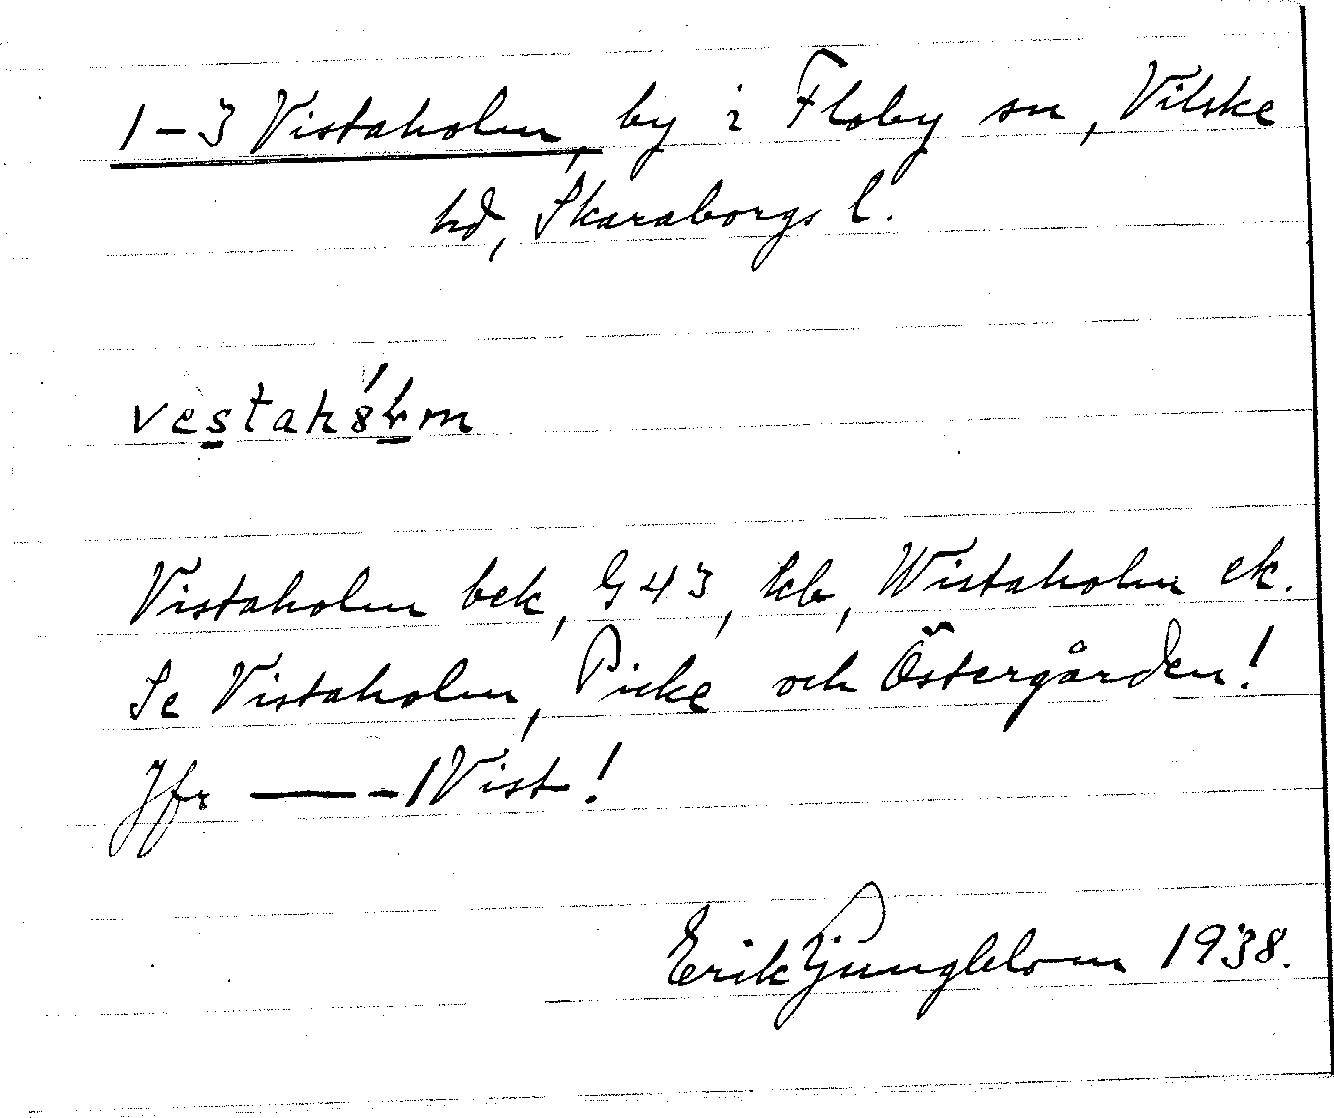 1-3 Vistaholm, by i Floby sn, Vilske
hd, Skaraborgs l.
Vistaholm bek, G 43, kb, Wistaholm ek.
Se Vistaholm, Picke och Östergården!
Jfr —— - 1 Vist!
Erik Ljungblom 1938.